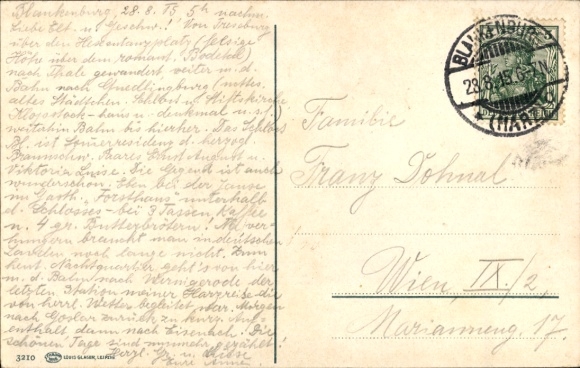 Blankenburg, 28.8.15 5h nachm.
Liebe Elt. u. Geschw.! Von Treseburg
über den Hexentanzplatz (felsige
Höhe über dem romant. Bodetal)
nach Thale gewandert, weiter m. d.
Bahn nach Quedlingburg (nettes,
altes Städtchen. Schloss u. Stiftskirche,
Klopstock-haus u. denkmal u.s.f.)
weiterhin Bahn bis hierher. Das Schloss
Bl. ist Sommerresidenz d. herzogl.
Braunschw. Paares Ernst August u.
Viktoria Luise. Die Gegend ist auch
wunderschön. Eben bei der Jause
im Gasth. Forsthaus unterhalb
d. Schlosses - bei 3 Tassen Kaffee
u. 4 gr. Butterbröten! Ver-
hungern braucht man in deutschen
Landen noch lange nicht. Zum
heut. Nachtquartier geht's von hier
m. d. Bahn nach Wernigerode der
letzten Station meiner Harzreise die
von herrl. Wetter begleitet war. Morgen
nach Goslar zurück zu kurz. Auf-
enthalt dann nach Eisenach. Die
schönen Tage sind nunmehr gezählt!
Herzl. Gr. u. Küsse
Eure
3210 LOUIS GLASER, LEIPZIG
BLANKENBURG
28.8.15.6-7N.
* (HARZ)
Familie
Franz Dohnal
Wien, IX./2,
Marianneng. 17.